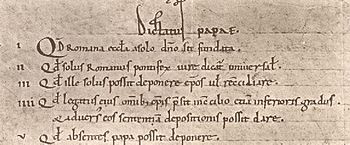 Dictatus papae.
I Qd Romana eccla a solo dno sit fundata.
II Qd solus Romanus pontifex iure dicat universal'.
III Qd ille solus possit deponere epos ul reconciliare
IIII Qd legatus eius omib; epis presit in concilio etiam inferioris gradus.
& adversus eos sententiam depositionis possit dare.
V Qd absentes papa possit deponere.